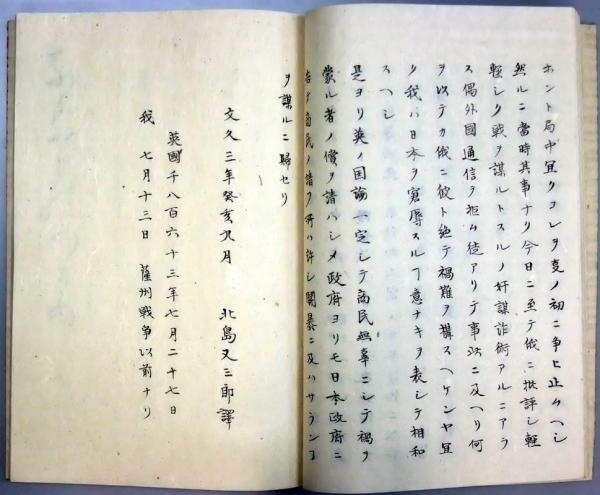 ホント局中宜クコレヲ変ノ初ニ争ヒ止ムヘシ
然ルニ當時其事ナク今日ニ至テ俄ニ批評シ軽
軽シク戦ヲ謀ルトスルノ奸謀詐術アルニアラ
ス偶外國通信ヲ拒ム徒アリテ事此ニ及ヘリ何
ヲ以テカ俄ニ彼ト絶テ禍難ヲ搆スヘケンヤ宜
ク我ハ日本ヲ窘辱スルヿ意ナキヲ表シテ相和
スヘシ
是ヨリ英ノ国論一定シテ商民無辜ニシテ禍ヲ
蒙ル者ノ償ヲ請ハシメ政府ヨリモ日本政府ニ
告テ商民ノ請フ所ハ許シ闘暴ニ及ハサランヿ
ヲ謀ルニ歸セリ
文久三年癸亥九月 北島又三郎譯
英國千八百六十三年七月二十七日
我 七月十三日 薩州戦争以前ナリ